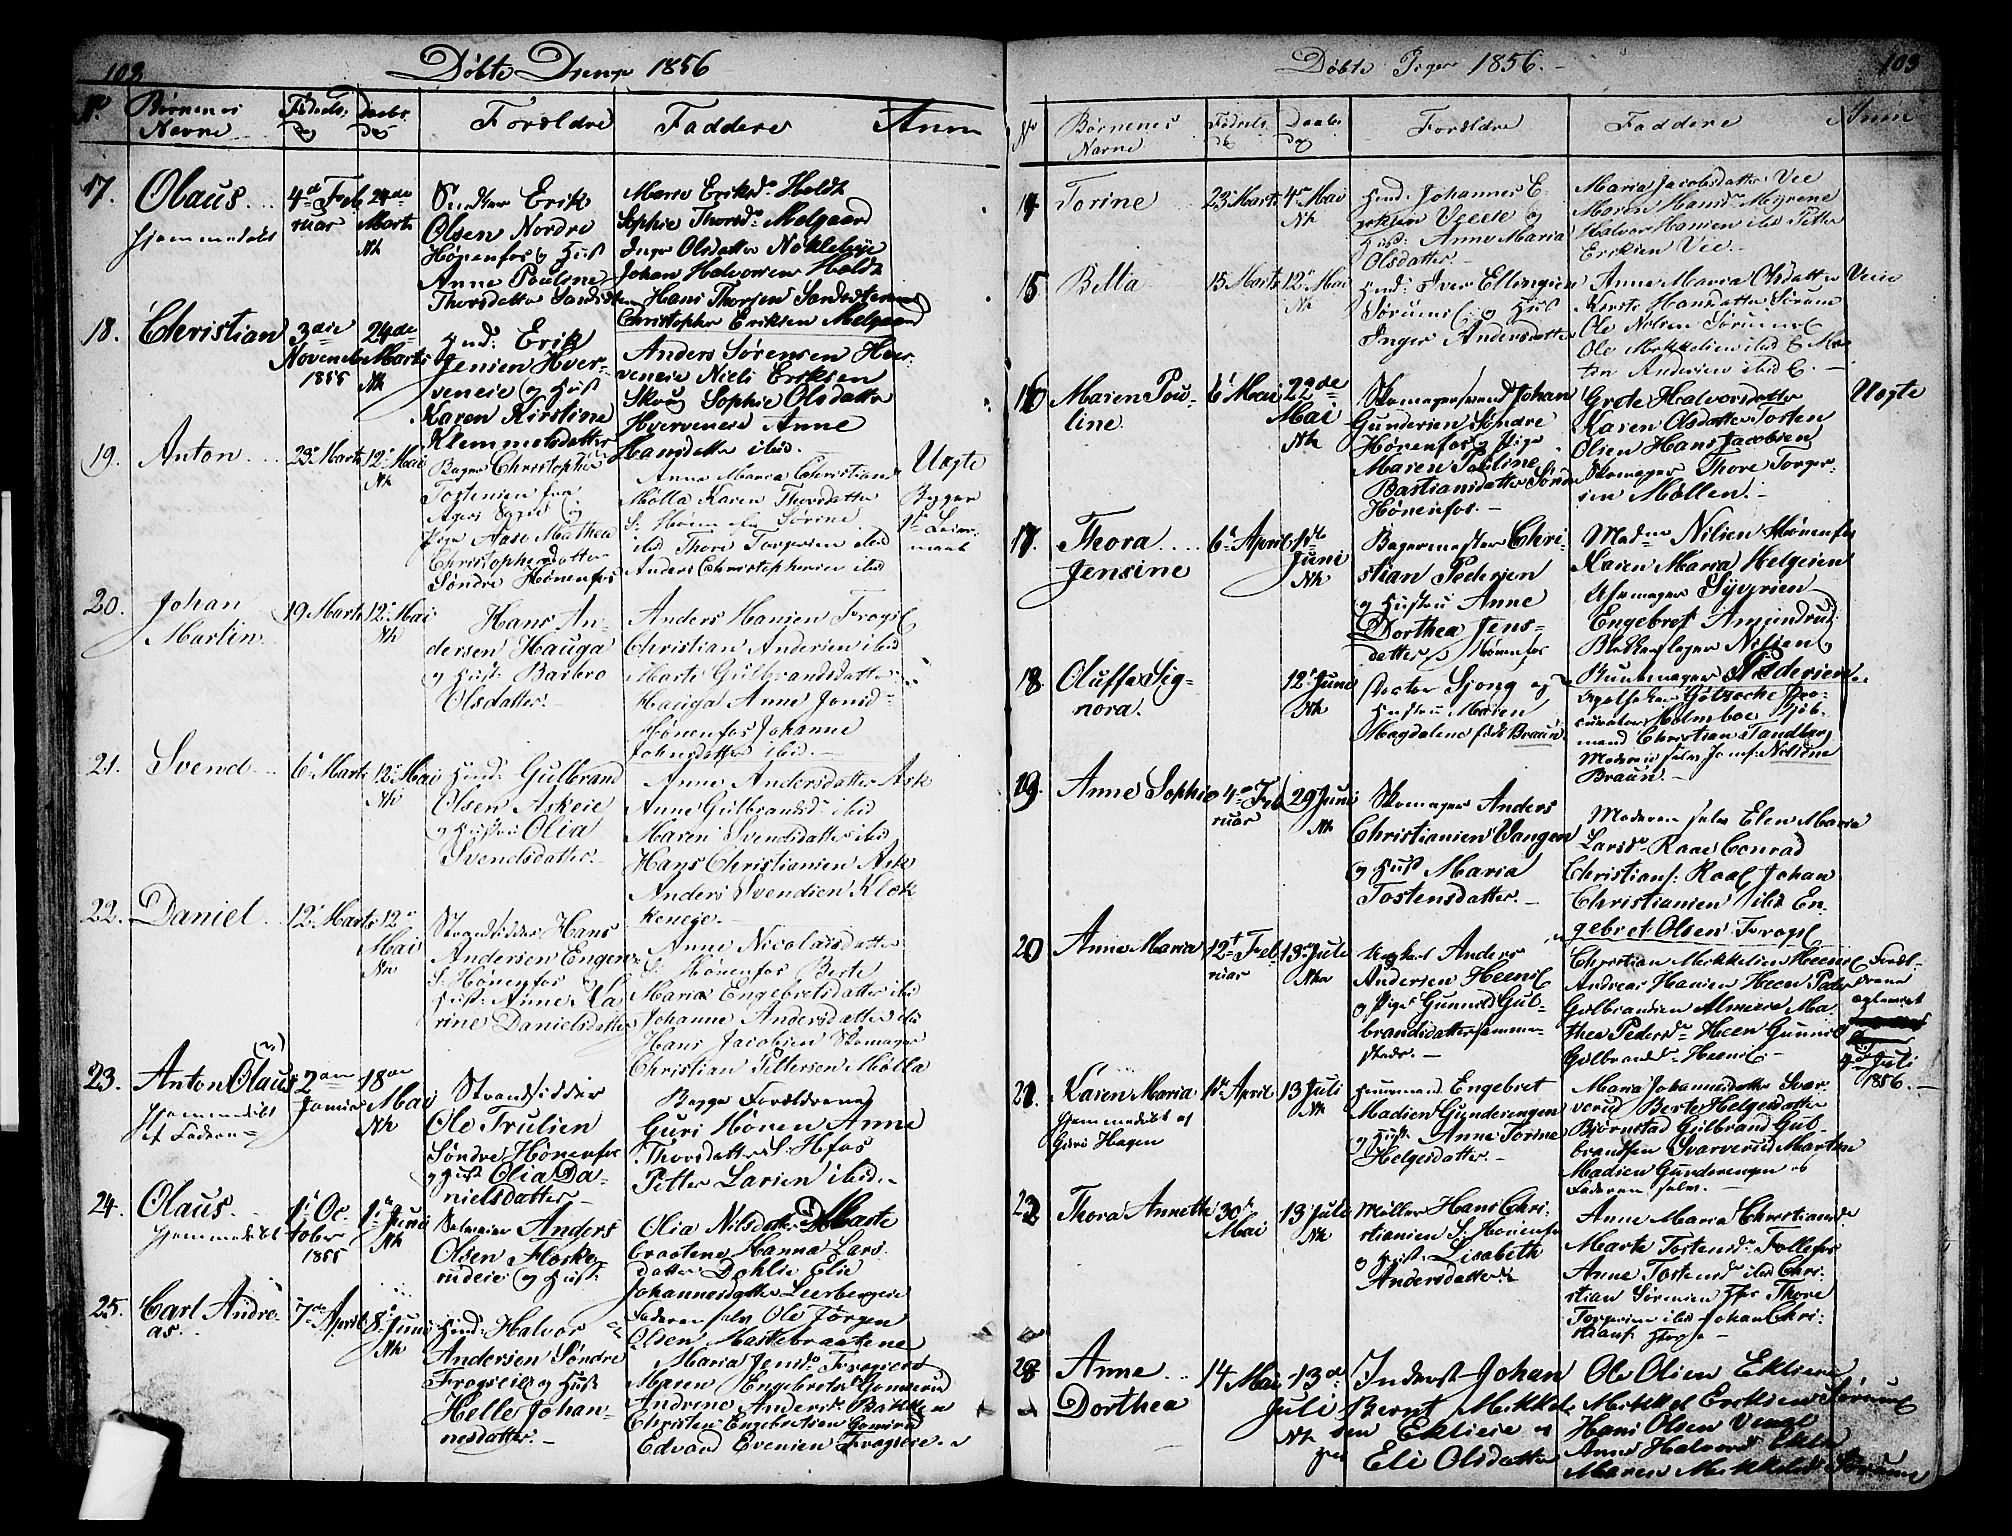 102
Døbte Drenge 1856
No.
Børnenes
Navne
Fødsels
Dag
Daabs
Dag
Forældre
Faddere
Anm
17.
Olaus
Hjemmedøbt
4de Feb
ruar
24de
Marts
Nk
Erik
Olsen Nordre
Hønenfos og Hust
Anne Pouline
Thorsdatter
Marie Eriksd. Holdt
Sophie Thorsd. Melgaard
Inger Olsdatter
Johan Halvorsen Holdt
Hans Thorsen
Christopher Eriksen Melgaard
18.
Christian
3die
November
1855
24de
Marts
Nk
Hmd: Erik
Jensen Hver-
veneie og Hust
Karen Kirstine
Klemmetsdatter
Anders Sørensen Hver-
veneie Niels Eriksen
Sophie Olsdatter
Hverveneie Anne
Hansdatter ibid.
19.
Anton
29. Marts
12. Mai
Nk
Bager Christopher
Tostensen fra
Agers Sogn og
Pige Aase Mathea
Christophersdatter
Søndre Hønenfos
Anne Maria Christians
Mølla Karen Thorsdatter
S: Hønenfos Sørine
ibid Thore Torgersen ibid
Anders Christophersen ibid
Uægte
Begges
1ste Leier-
maal
20.
Johan
Martin
19 Marts
12. Mai
Nk
Hans An-
dersen Hauga
og Hust: Barbro
Olsdatter.-
Anders Hansen
Christian Andersen ibid
Marte Gulbrandsdatter
Hauga Anne Jonsd.
Hønenfos Johanne
Johnsdatter ibid.-
21.
Svend
6. Marts
12. Mai
Nk
Hmd: Gulbrand
Olsen Askeie
og Hustru Olia
Svendsdatter.-
Anne Andersdatter Ask
Anne Gulbrandsd. ibid
Maren Svendsdatter ibid
Hans Christiansen Ask
Anders Svendsen Klæk
keneie.-
22.
Daniel
12. Marts
12.
Mai
Nk
Strandsidder Hans
Andersen Engen
S. Hønenfos og
Hust: Anne Ka
rine Danielsdatter
Anne Nicolaisdatter
S: Hønenfos Berte
Maria Engebretsdatter ibid
Johanne Andersdatter ibid
Hans Jacobsen Skomager
Christian Pettersen Mølla
23.
Anton Olaus
Hjemmedøbt
af Faderen
2den
Januar
18de
Mai
Nk
Strandsidder
Ole Trulsen
Søndre Hønenfos
og Hust Olia Da-
nielsdatter.-
Begge Forældrene
Guri Monen Anne
Thorsdatter S: Hfos
Petter Larsen ibid.-
24.
Olaus
Hjemmedøbt
1. Oc
tober
1855
1.
Juni
Nk
Anders
Olsen Flaske
rudeie og Hust:
Olia Nilsdatter Marte
braatene Hanna Lars-
datter Dehlie Elie
Johannesdatter Leerbergeie
Faderen selv Ole Jørgen
Olsen
25.
Carl Andre-
as
7de April
8. Juni
Nk
Hmd: Halvor
Andersen Søndre
og Hust
Helle Johan-
nesdatter.-
Maria Jensd.
Maren Engebretsd.
Andrene Andersd. Bakken
Christen Engebretsen
Edvard Evensen
Døbte Piger 1856.-
103
No
Børnenes
Navne
Fødsels
Dag
Daabs
Dag
Forældre
Faddere
Anm
14
Torine
23 Marts
4. Mai
Nk
Hmd: Johannes E-
riksen Veeie og
Hust: Anne Maria
Olsdatter.-
Maria Jacobsdatter Vee
Maren Hansd.
Halvor Hansen ibid Petter
Eriksen Vee.-
15
Bella
15 Marts
12. Mai
Nk
Hmd: Iver Ellingsen
og Hust
Inger Andersdatter
Anne Maria Olsdatter Veeie
Kirste Hansdatter Sørum
Ole Nilsen
Ole Mikkelsen ibid Mar-
tin Andersen ibid.-
16
Maren Pou-
line
6. Mai
22de
Mai
Nk
Skomagersvend Johan
Gundersen Søndre
Hønenfos og Pige
Maren Pouline
Bastiansdatter Søndre
Hønenfos.-
Grete Halvorsdatter
Karen Olsdatter Tosten
Olsen Hans Jacobsen
Skomager Thore Torger-
sen Mollen.-
Uægte
17.
Thora
Jensine
6. April
1ste
Juni
Nk
Bagermester Chri-
stian Pedersen
og Hustru Anne
Dorthea Jens-
datter Hønenfos
Madme Nilsen Hønenfos
Karen Maria Helgesen
Uhrmager Syversen
Engebret Amundrud
Blikkenslager Nilsen
Buntmager Pedersen
18
Oluffa Sig-
nora.
12. Juni
Nk
Doctor Sjong og
Hustru Maren
Magdalene født Braun.
Gøtzsche Pro-
curator Holmboe
mand Christian Tandberg
Moderen selv Jomf. Nelsine
Braun.-
19.
Anne Sophie
4de Feb
ruar
29 Juni
Nk
Skomager Anders
Christiansen Vangen
og Hust Maria
Tostensdatter.-
Moderen selv Elen Maria
Larsd. Raae Conrad
Christians: Raae Johan
Christiansen ibid En-
gebret Olsen
20
Anne Maria
12te Feb-
ruar
13. Juli
Nk
Ungkarl Anders
Andersen Heens
og Pige Gunnild Gul-
brandsdatter samme-
steds.-
Christian Mikkelsen Heens
Andreas Hansen Heen Peder
Gulbrandsen Almeeie Ma-
thea Pedersd. Heen Gunnild
Gulbrandsd. Heens.-
Foræl-
drene
ægteviet
4de Juli
1856.-
21.
Karen Maria
Hjemmedøbt af
Guri Hagen
1ste April
13 Juli
Nk
Huusmand Engebret
Madsen Gunderengen
og Hust: Anne Torine
Helgesdatter.-
Maria Johannesdatter Svar-
verud Berte Helgesdatter
Bjørnstad Gulbrand Gul-
brandsen Svarverud Martha
Madsen Gunderengen og
Faderen selv.-
22
Thora Annette
30.
Mai
13 Juli
Nk
Møller Hans Chri-
stiansen S. Hønenfos
og Hust: Lisabeth
Andersdatter.-
Anne Maria Christiansd.
Marte Tostensd. Follefos
Anne Tostensd. ibid Chri-
stian Sørensen Hfos Thore
Torgersen ibid Johan Chri-
stians: Hfos.-
23
Anne
Dorthea
14 Mai
13de
Juli
Nk
Inderst Johan
Bernt Mikkel-
sen Ekleeie og
Eli Olsdatter
Ole Olsen Ekleeie
Mikkel Eriksen
Hans Olsen
Anne Halvorsd. Ekle
Maren Mikkelsd.